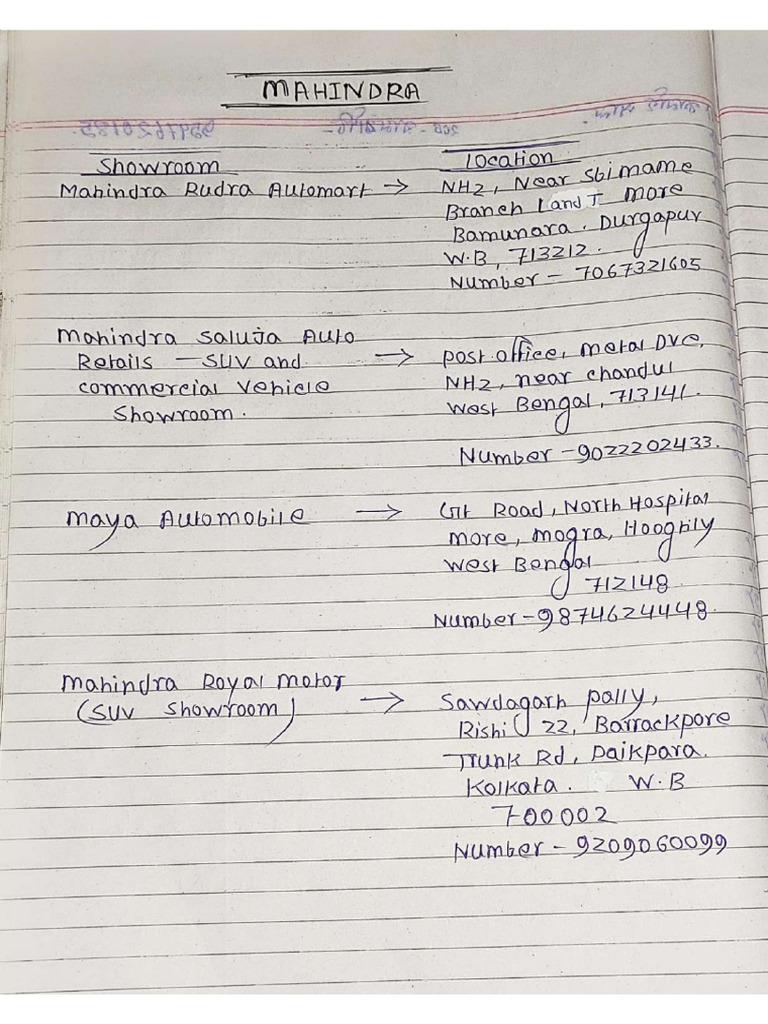 MAHINDRA
Showroom
Location
Mahindra Rudra Automart →
NH2, Near Sbi mame
Branch L and T more
Bamunara. Durgapur
W.B, 713212.
Number - 7067321605
Mahindra Saluja Auto
Retails - SUV and
commercial vehicle
Showroom.
→
post office, metal DVC,
NH2, near chandul
West Bengal, 713141.
Number - 9022202433.
Maya Automobile →
GT Road, North Hospital
more, mogra, Hooghly
West Bengal
712148
Number - 9874624448.
Mahindra Royal Motor
(SUV Showroom) →
Sawdagarh pally,
Rishi 22, Barrackpore
Trunk Rd, Paikpara.
Kolkata. W.B
700002
Number - 9209060099